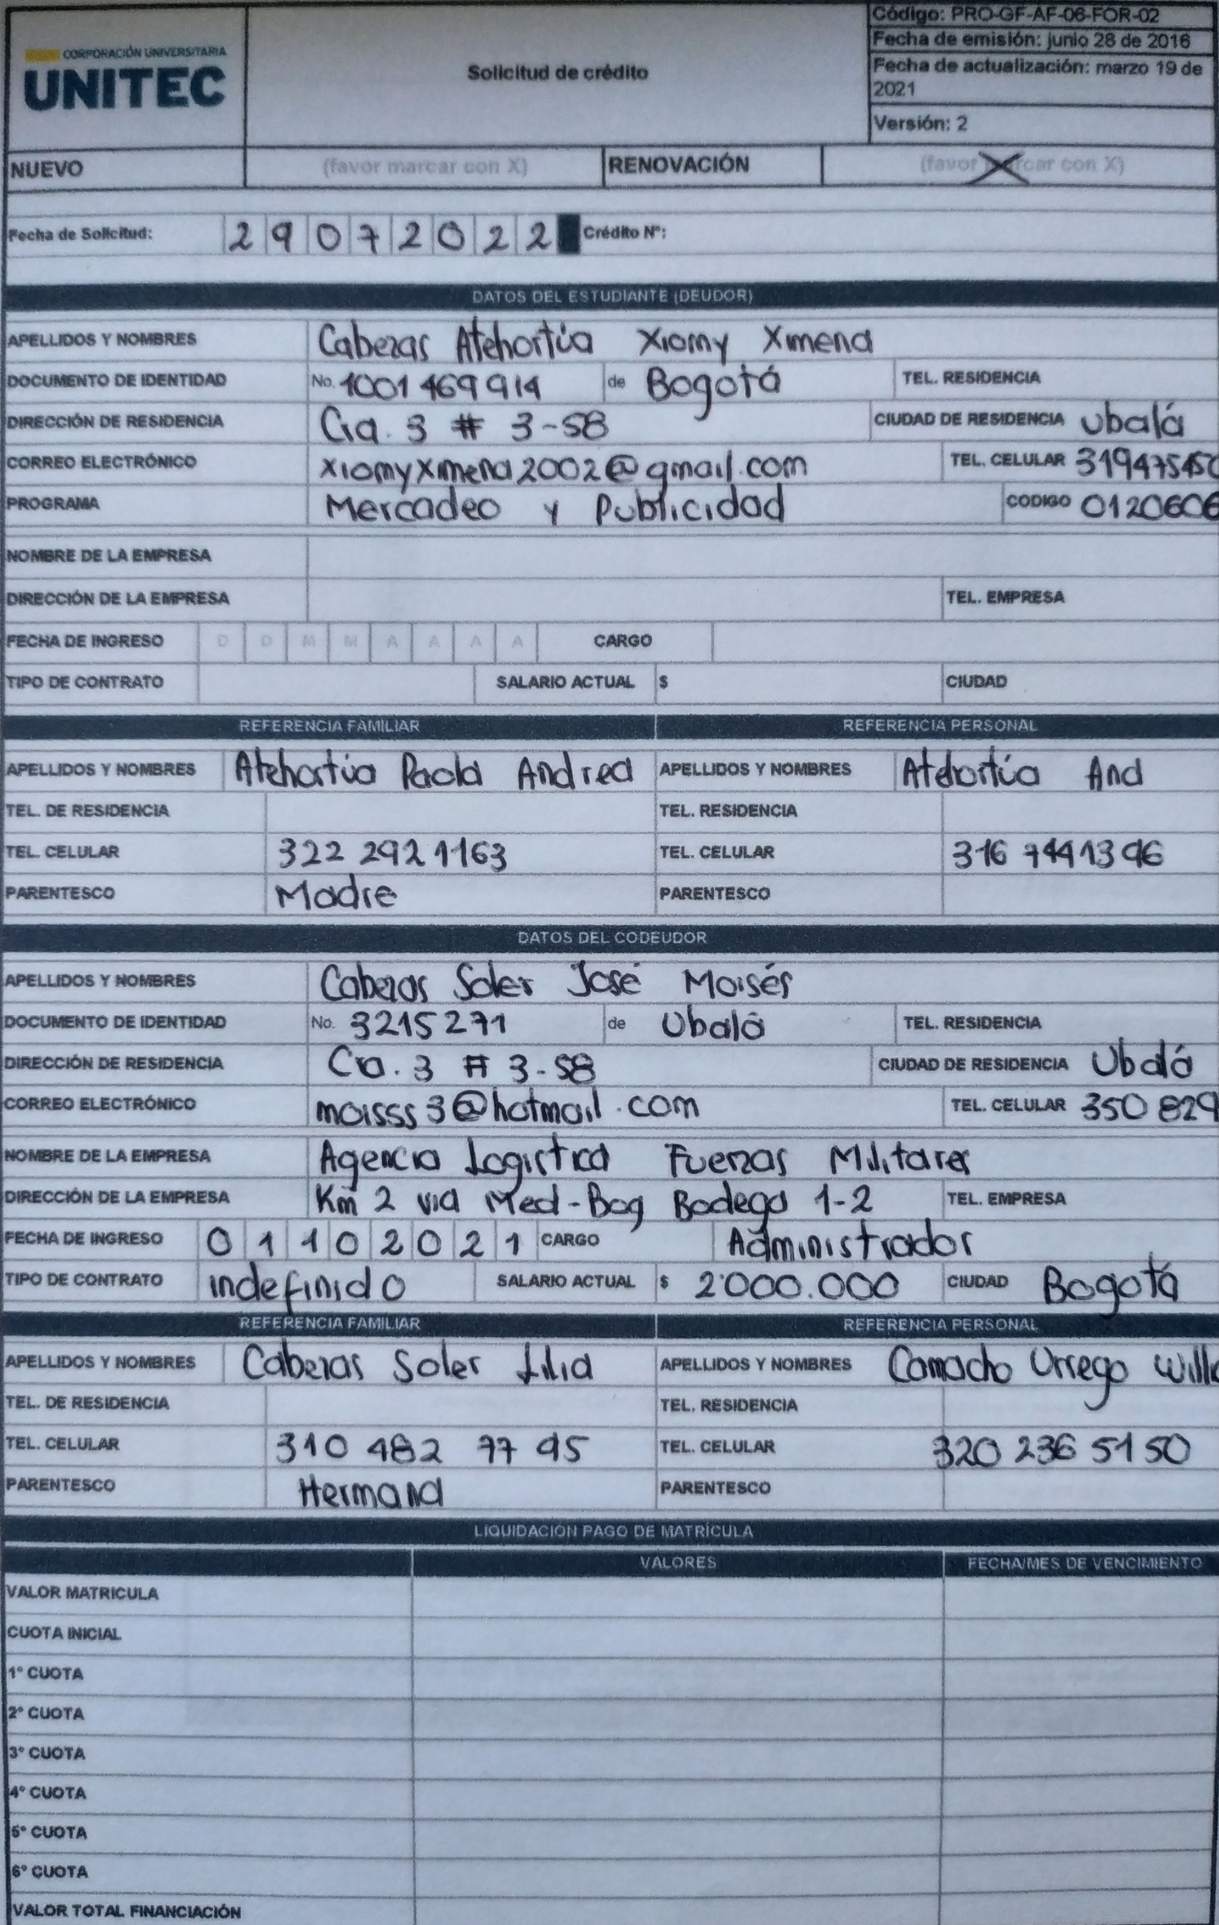 CORPORACIÓN UNIVERSITARIA
UNITEC
Solicitud de crédito
Código: PRO-GF-AF-06-FOR-02
Fecha de emisión: junio 28 de 2016
Fecha de actualización: marzo 19 de
2021
Versión: 2
NUEVO (favor marcar con X) RENOVACIÓN (favor marcar con X)
Fecha de Solicitud: 29072022 Crédito Nº:
DATOS DEL ESTUDIANTE (DEUDOR)
APELLIDOS Y NOMBRES Cabezas Atehortúa Xiomy Ximena
DOCUMENTO DE IDENTIDAD No. 1001469914 de Bogotá TEL. RESIDENCIA
DIRECCIÓN DE RESIDENCIA Cra. 3 # 3-58 CIUDAD DE RESIDENCIA Ubalá
CORREO ELECTRÓNICO xiomyximena2002@gmail.com TEL. CELULAR 319475450
PROGRAMA Mercadeo y Publicidad CODIGO 0120606
NOMBRE DE LA EMPRESA
DIRECCIÓN DE LA EMPRESA TEL. EMPRESA
FECHA DE INGRESO D D M M A A A A CARGO
TIPO DE CONTRATO SALARIO ACTUAL $ CIUDAD
REFERENCIA FAMILIAR REFERENCIA PERSONAL
APELLIDOS Y NOMBRES Atehortúa Paola Andrea APELLIDOS Y NOMBRES Atehortúa And
TEL. DE RESIDENCIA TEL. RESIDENCIA
TEL. CELULAR 322 292 1163 TEL. CELULAR 316 7441396
PARENTESCO Madre PARENTESCO
DATOS DEL CODEUDOR
APELLIDOS Y NOMBRES Cabezas Soler José Moisés
DOCUMENTO DE IDENTIDAD No. 3215271 de Ubalá TEL. RESIDENCIA
DIRECCIÓN DE RESIDENCIA Cra. 3 # 3-58 CIUDAD DE RESIDENCIA Ubalá
CORREO ELECTRÓNICO moisss3@hotmail.com TEL. CELULAR 350 829
NOMBRE DE LA EMPRESA Agencia Logistica Fuerzas Militares
DIRECCIÓN DE LA EMPRESA Km 2 via Med-Bog Bodega 1-2 TEL. EMPRESA
FECHA DE INGRESO 01102021 CARGO Administrador
TIPO DE CONTRATO indefinido SALARIO ACTUAL $ 2'000.000 CIUDAD Bogotá
REFERENCIA FAMILIAR REFERENCIA PERSONAL
APELLIDOS Y NOMBRES Cabezas Soler Lilia APELLIDOS Y NOMBRES Camacho Urrego
TEL. DE RESIDENCIA TEL. RESIDENCIA
TEL. CELULAR 310 482 77 95 TEL. CELULAR 320 236 5150
PARENTESCO Hermana PARENTESCO
LIQUIDACIÓN PAGO DE MATRÍCULA
VALORES FECHA/MES DE VENCIMIENTO
VALOR MATRICULA
CUOTA INICIAL
1º CUOTA
2º CUOTA
3º CUOTA
4º CUOTA
5º CUOTA
6º CUOTA
VALOR TOTAL FINANCIACIÓN